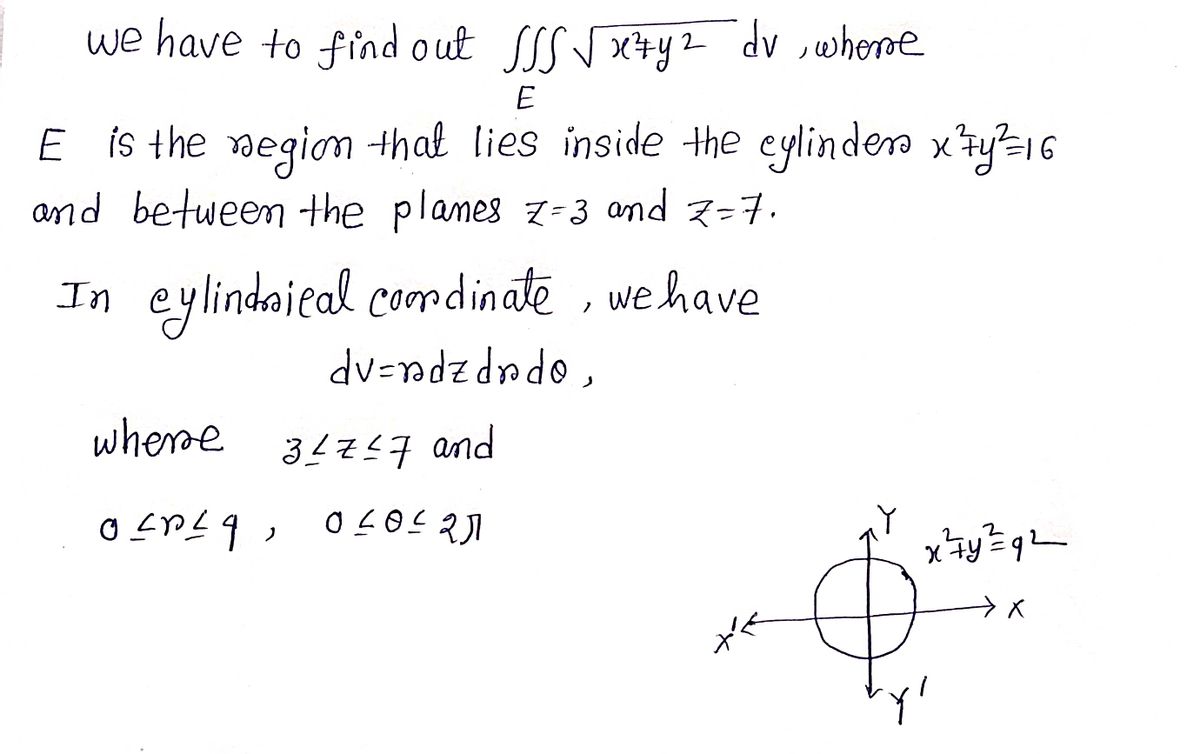 we have to find out ∭ √x²+y² dv , where
E
E is the region that lies inside the cylinder x²+y²=16
and between the planes z=3 and z=7.
In cylindrical coordinate , we have
dv=rdzdrdθ ,
where 3≤z≤7 and
0≤r≤4 , 0≤θ≤2π
Y
x²+y²=4²
X
X'
Y'